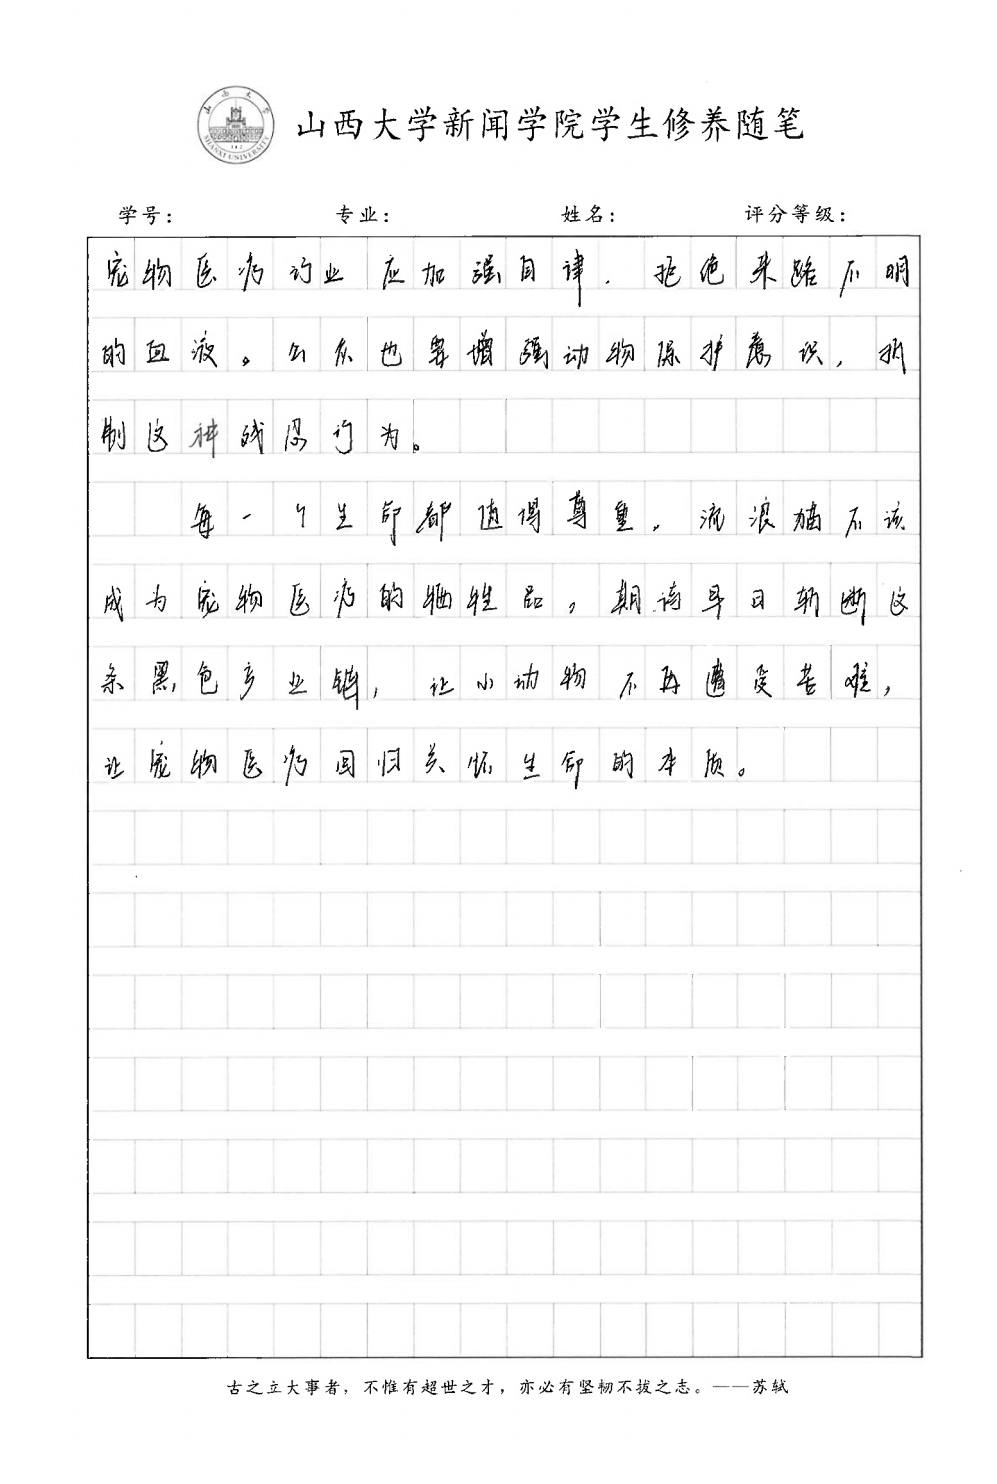 山西大学
SHANXI UNIVERSITY
山西大学新闻学院学生修养随笔
学号： 专业： 姓名： 评分等级：
宠物医疗行业应加强自律，拒绝来路不明
的血液。公众也要增强动物保护意识，抵
制这种残忍行为。
每一个生命都值得尊重，流浪猫不该
成为宠物医疗的牺牲品，期待早日斩断这
条黑色产业链，让小动物不再遭受苦难，
让宠物医疗回归关怀生命的本质。
古之立大事者，不惟有超世之才，亦必有坚韧不拔之志。——苏轼